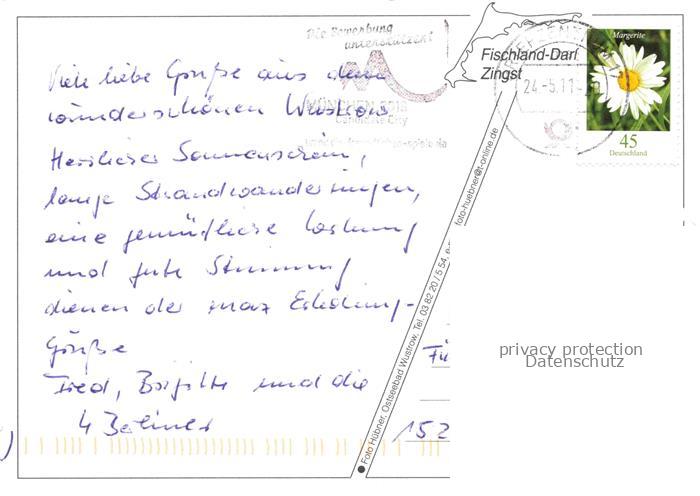 Die Bewerbung
unterstützen!
MÜNCHEN 2018
Candidate City
Fischland-Darß
Zingst
24.-5.11
Margerite
45
Deutschland
Viele liebe Grüße aus dem
wunderschönen Wustrow.
Herrlicher Sonnenschein,
lange Strandwanderungen,
eine gemütliche Wohnung
und gute Stimmung
dienen der max Erholung.
Grüße
Fred, Brigitte und die
4 Berliner
Foto Hübner, Ostseebad Wustrow, Tel. 03 82 20 / 5 54,
foto-huebner@t-online.de
Fü
152
privacy protection
Datenschutz